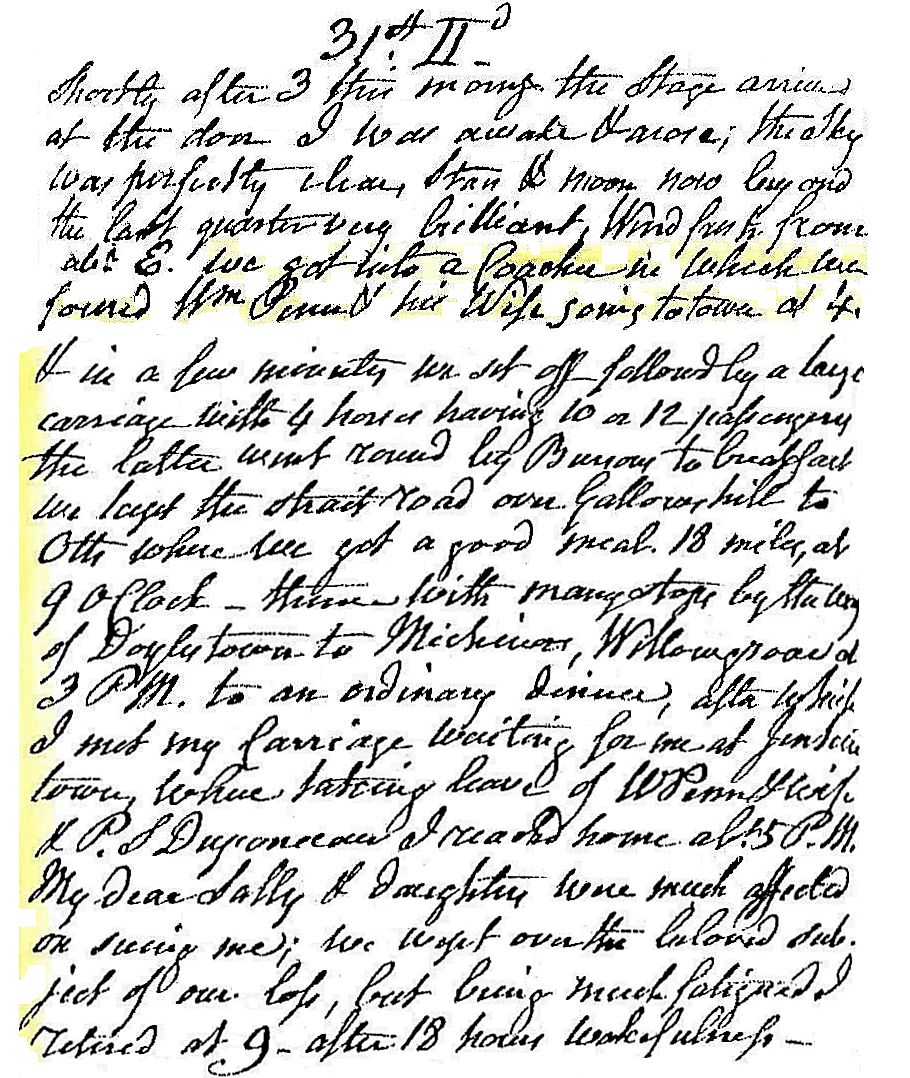 31st. II d
Shortly after 3 this morng. the Stage arrived
at the door I was awake & arose; the sky
was perfectly clear, Stars & moon now beyond
the last quarter very brilliant, Wind fresh from
abt. E. we got into a Coachee in which we
found Wm Penn & his Wife going to town at 4.
& in a few minutes we set off followd by a large
carriage with 4 horses having 10 or 12 passengers
the latter went round by Bursons to breakfast
we kept the strait road over Gallows hill to
Otts where we got a good meal. 18 miles, at
9 OClock – thence with many stops by the way
of Doylstown to Micheners, Willowgroove at
3 PM. to an ordinary dinner, after which
I met my Carriage waiting for me at Jenkin
town, where taking leave of W Penn & wife
& P. S Duponceau I reachd home abt. 5 P.M.
My dear Sally & daughters were much affected
on seeing me; we wept over the beloved sub.
ject of our loss, but being much fatigued I
retired at 9 – after 18 hours wakefulness –